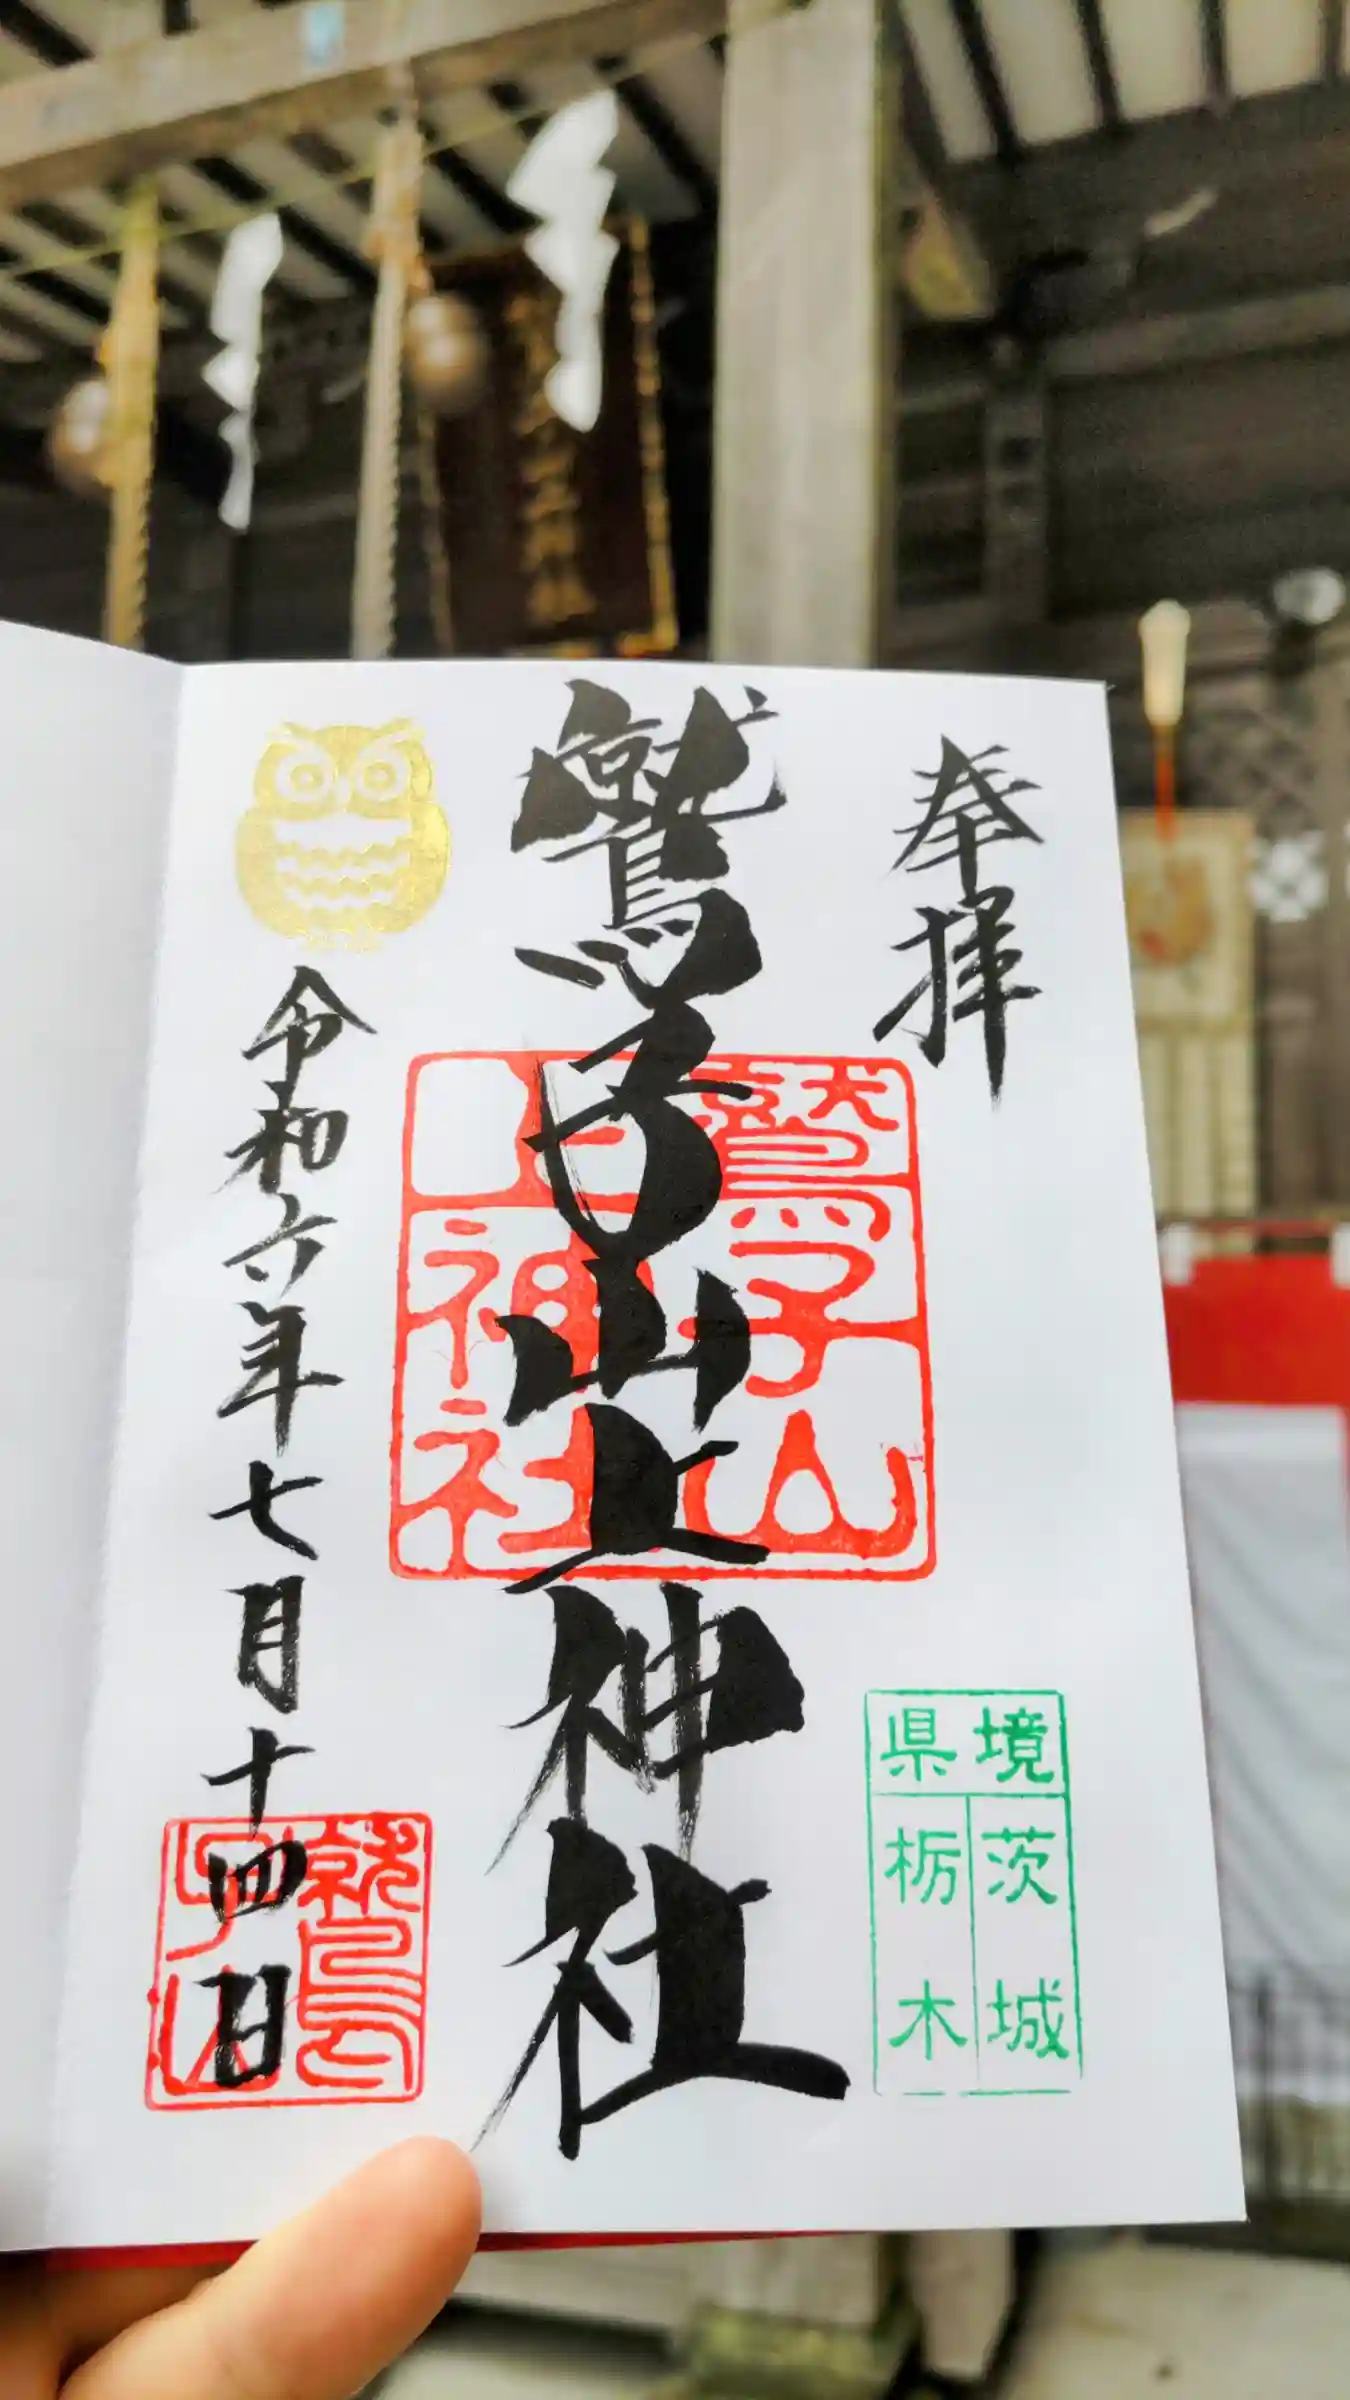 奉拝
鷲子山上神社
鷲子山
上神社
県境
茨城
栃木
令和六年七月十四日
鷲
子山